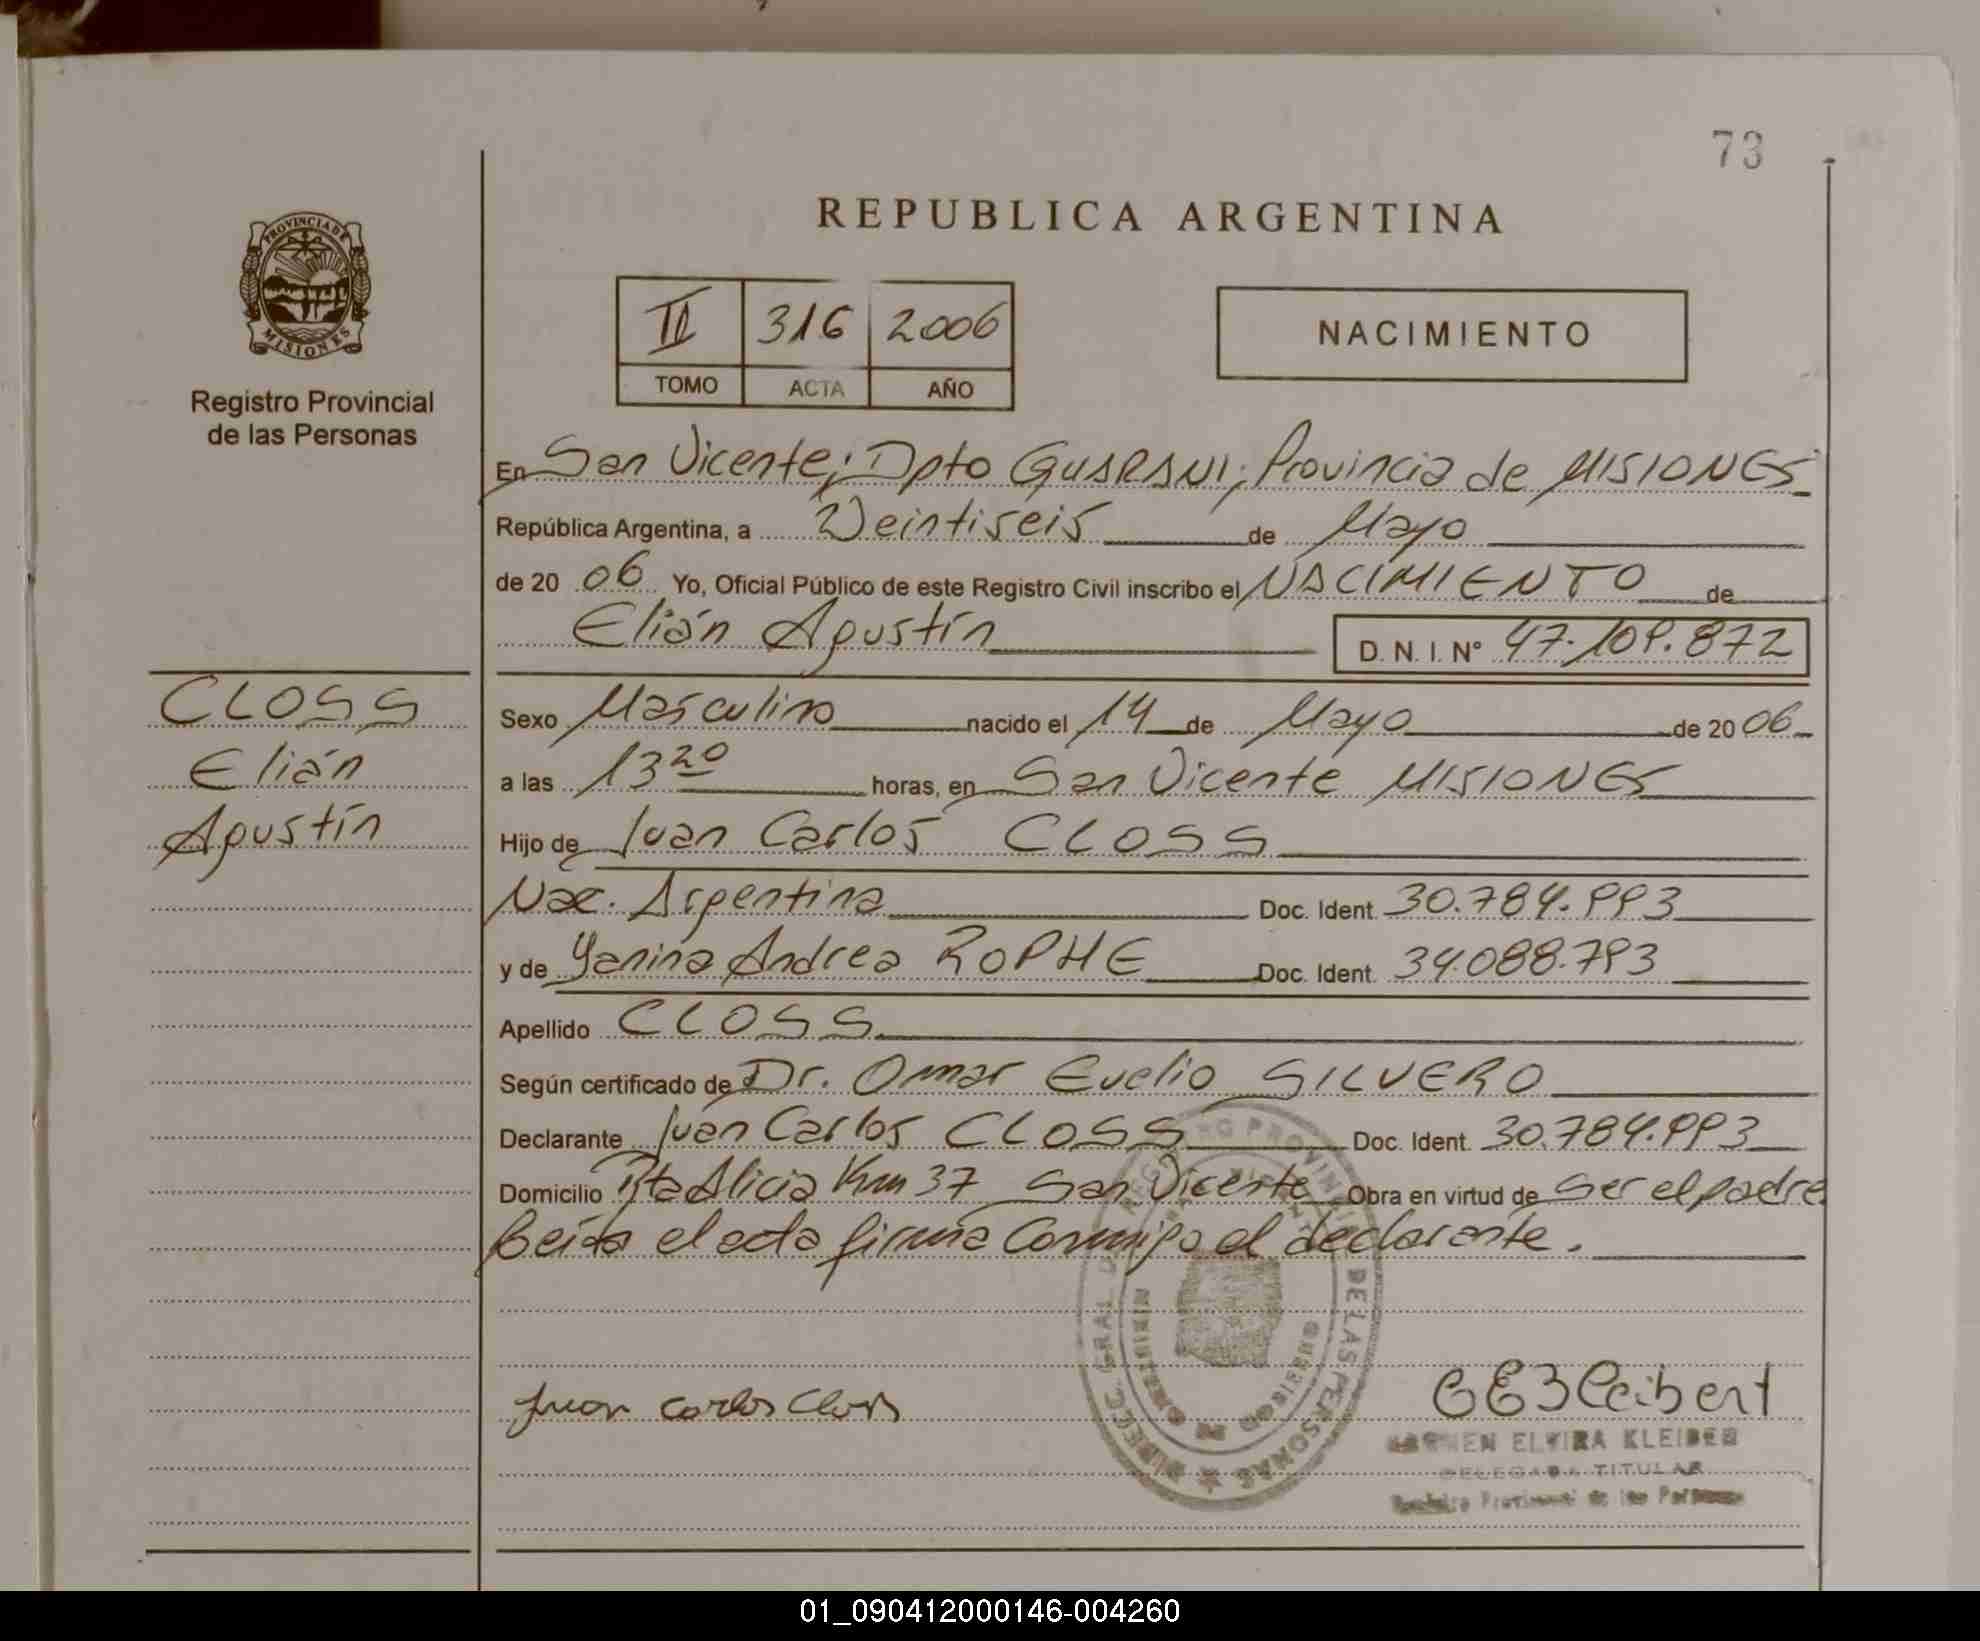 73
REPUBLICA ARGENTINA
PROVINCIA DE
MISIONES
Registro Provincial
de las Personas
II 316 2006
TOMO ACTA AÑO
NACIMIENTO
En San Vicente; Dpto GUARANI; Provincia de MISIONES
República Argentina, a Veintiseis de Mayo
de 20 06 Yo, Oficial Público de este Registro Civil inscribo el NACIMIENTO de
Elián Agustín D. N. I. N° 47.109.872
CLOSS
Elián
Agustín
Sexo Masculino nacido el 14 de Mayo de 20 06
a las 13 20 horas, en San Vicente MISIONES
Hijo de Juan Carlos CLOSS
Nac. Argentina Doc. Ident. 30.784.993
y de Yanina Andrea ROPHE Doc. Ident. 34.088.793
Apellido CLOSS
Según certificado de Dr. Omar Evelio SILVERO
Declarante Juan Carlos CLOSS Doc. Ident. 30.784.993
Domicilio Alicia Km 37 San Vicente Obra en virtud de ser el padre
Leída el acta firma conmigo el declarante.
DIREC. GRAL. DEL REGISTRO PROVINCIAL DE LAS PERSONAS
Juan Carlos Closs
CARMEN ELVIRA KLEIBER
DELEGADA TITULAR
Registro Provincial de las Personas
01_090412000146-004260